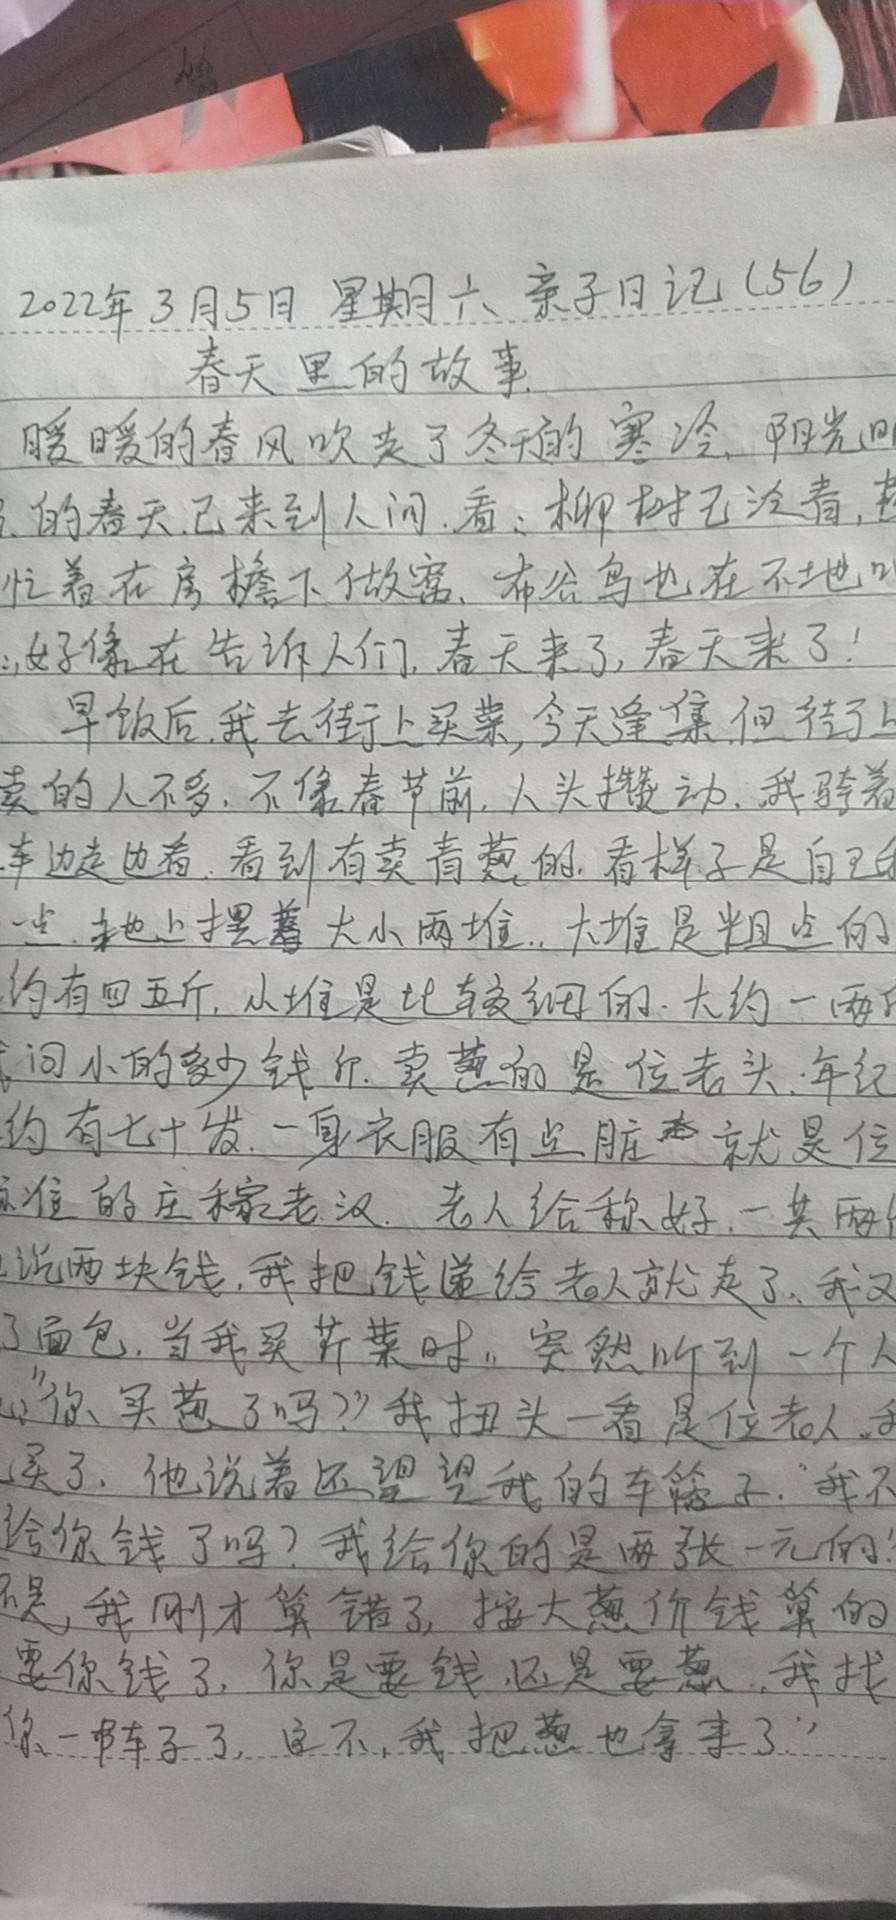 2022年3月5日 星期六、亲子日记(56)
春天里的故事
暖暖的春风吹走了冬天的寒冷、阳光明
的春天已来到人间.看:柳树已泛青,
忙着在房檐下做窝、布谷鸟也在不地叫
,好像在告诉人们,春天来了,春天来了!
早饭后,我去街上买菜,今天逢集但街上
卖的人不多.不像春节前,人头攒动.我骑着
车边走边看.看到有卖青葱的.看样子是自己
一点.地上摆着大小两堆,大堆是粗点的
约有四五斤,小堆是比较细的.大约一两斤
问小的多少钱斤.卖葱的是位老头.年纪
约有七十岁.一身衣服有点脏 就是位
标准的庄稼老汉.老人给称好.一共两
说两块钱,我把钱递给老人就走了,我又
了面包.当我买芹菜时,突然听到一个人
"你买葱了吗?"我扭头一看是位老人,我
买了.他说着还望望我的车篓子."我不
给你钱了吗?我给你的是两张一元的!
不是,我刚才算错了,按大葱价钱算的
要你钱了,你是要钱还是要葱,我找
你一阵子了,这不,我把葱也拿来了"